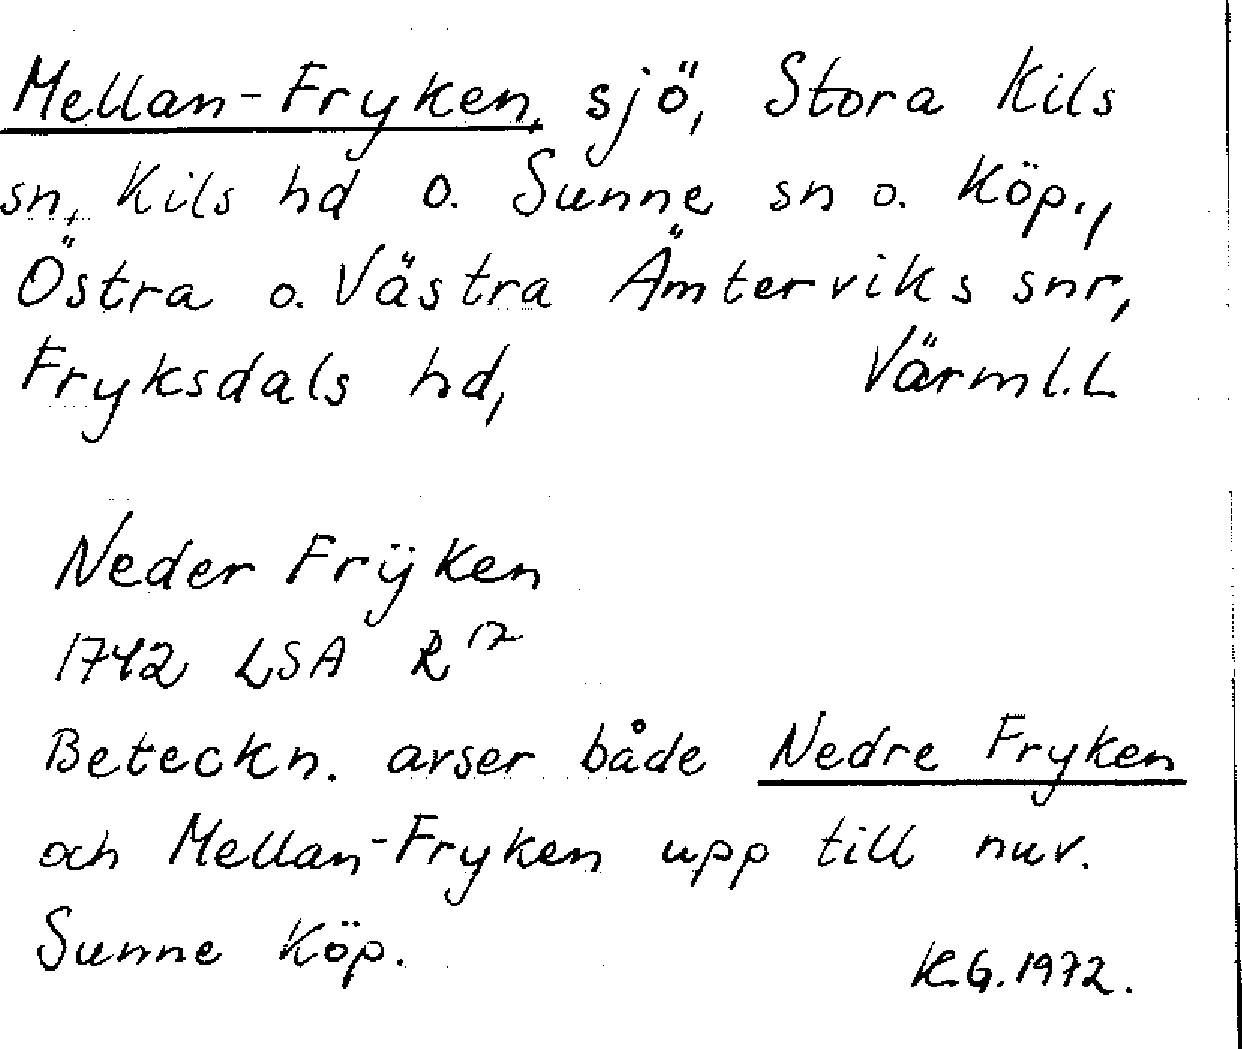 Mellan-Fryken, sjö, Stora Kils
sn, Kils hd o. Sunne sn o. Köp.,
Östra o. Västra Ämterviks snr,
Fryksdals hd, Värml.L
Neder Frÿken
1742 LSA R 17
Beteckn. avser både Nedre Fryken
och Mellan-Fryken upp till nuv.
Sunne Köp.
K.G. 1972.